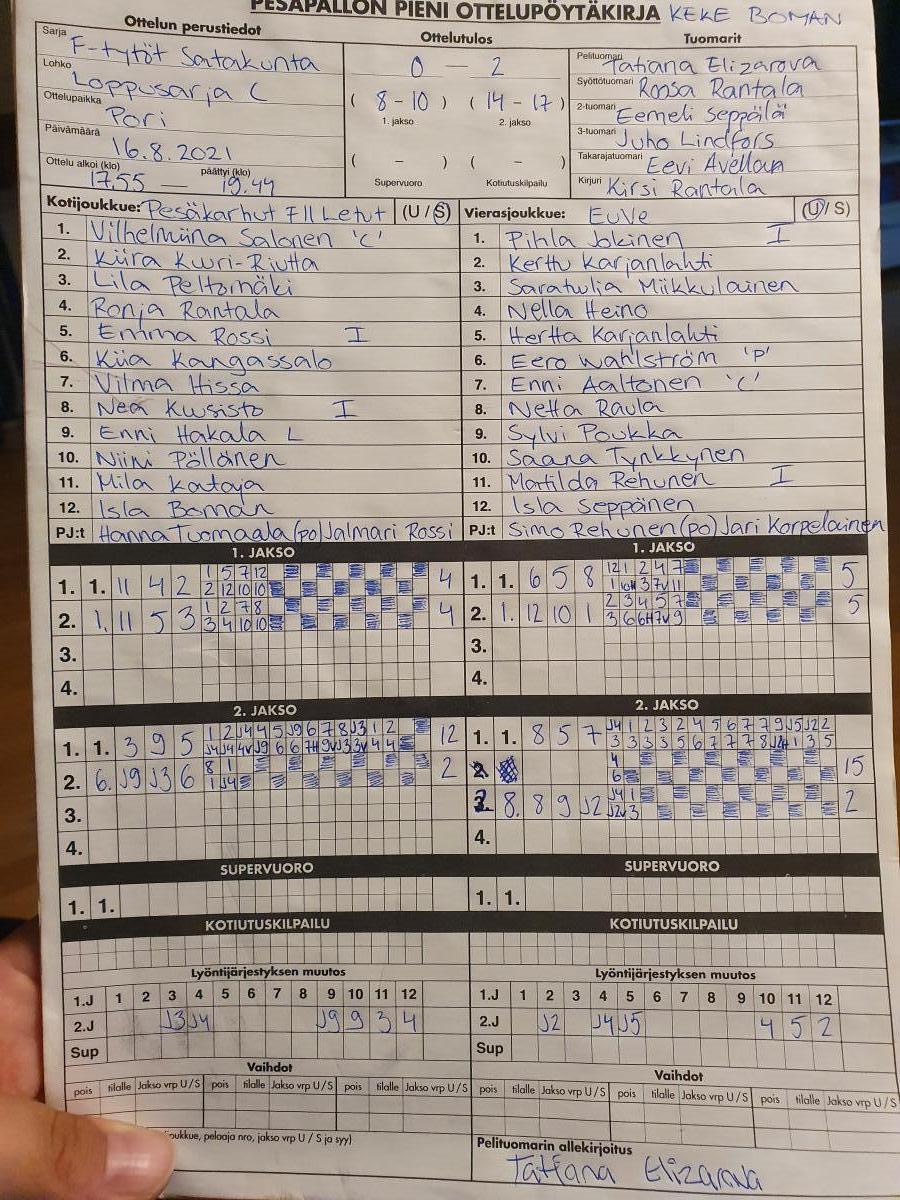 PESÄPALLON PIENI OTTELUPÖYTÄKIRJA KEKE BOMAN
Ottelun perustiedot
Sarja F-tytöt Satakunta
Lohko Loppusarja C
Ottelupaikka Pori
Päivämäärä 16.8.2021
Ottelu alkoi (klo) päättyi (klo)
17.55 — 19.44
Ottelutulos
0 — 2
( 8 - 10 ) ( 14 - 17 )
1. jakso 2. jakso
( - ) ( - )
Supervuoro Kotiutuskilpailu
Tuomarit
Pelituomari Tatiana Elizarova
Syöttötuomari Roosa Rantala
2-tuomari Eemeli Seppälä
3-tuomari Juho Lindfors
Takarajatuomari Eevi Avellan
Kirjuri Kirsi Rantala
Kotijoukkue: Pesäkarhut F11 Letut (U / S)
1. Vilhelmiina Salonen 'C'
2. Kiira Kuuri-Riutta
3. Lila Peltomäki
4. Ronja Rantala
5. Emma Rossi I
6. Kiia Kangassalo
7. Vilma Hissa
8. Nea Kuusisto I
9. Enni Hakala L
10. Niini Pöllänen
11. Mila Kataja
12. Isla Boman
PJ:t Hanna Tuomaala (po) Jalmari Rossi
Vierasjoukkue: EuVe (U / S)
1. Pihla Jokinen I
2. Kerttu Karjanlahti
3. Saratuulia Miikkulainen
4. Nella Heino
5. Hertta Karjanlahti
6. Eero Wahlström 'P'
7. Enni Aaltonen 'C'
8. Netta Raula
9. Sylvi Poukka
10. Saana Tynkkynen
11. Matilda Rehunen I
12. Isla Seppänen
PJ:t Simo Rehunen (po) Jari Korpelainen
1. JAKSO
1. 1. 11 4 2 1 5 7 12 4
2 12 10 10
2. 1. 11 5 3 1 2 7 8 4
3 4 10 10
3.
4.
1. JAKSO
1. 1. 6 5 8 12 1 2 4 7 5
2. 1. 12 10 1 2 3 4 5 7 5
3 6 6H 7V 9
3.
4.
2. JAKSO
1. 1. 3 9 5 1 2 J4 4 5 J9 6 7 8 J3 1 2 12
2. 6. J9 J3 6 8 1 2
1 J4
3.
4.
2. JAKSO
1. 1. 8 5 7 J4 1 2 3 2 4 5 6 7 7 9 J5 J2 2
4 15
6
3. 8. 8 9 J2 J4 1 2
J2V 3
4.
SUPERVUORO
1. 1.
SUPERVUORO
1. 1.
KOTIUTUSKILPAILU
KOTIUTUSKILPAILU
Lyöntijärjestyksen muutos
1.J 1 2 3 4 5 6 7 8 9 10 11 12
2.J J3 J4 J9 9 3 4
Sup
Lyöntijärjestyksen muutos
1.J 1 2 3 4 5 6 7 8 9 10 11 12
2.J J2 J4 J5 4 5 2
Sup
Vaihdot
pois tilalle Jakso vrp U / S pois tilalle Jakso vrp U / S pois tilalle Jakso vrp U / S
Vaihdot
pois tilalle Jakso vrp U / S pois tilalle Jakso vrp U / S pois tilalle Jakso vrp U / S
pelaaja nro, jakso vrp U / S ja syy)
Pelituomarin allekirjoitus
Tatiana Elizarova